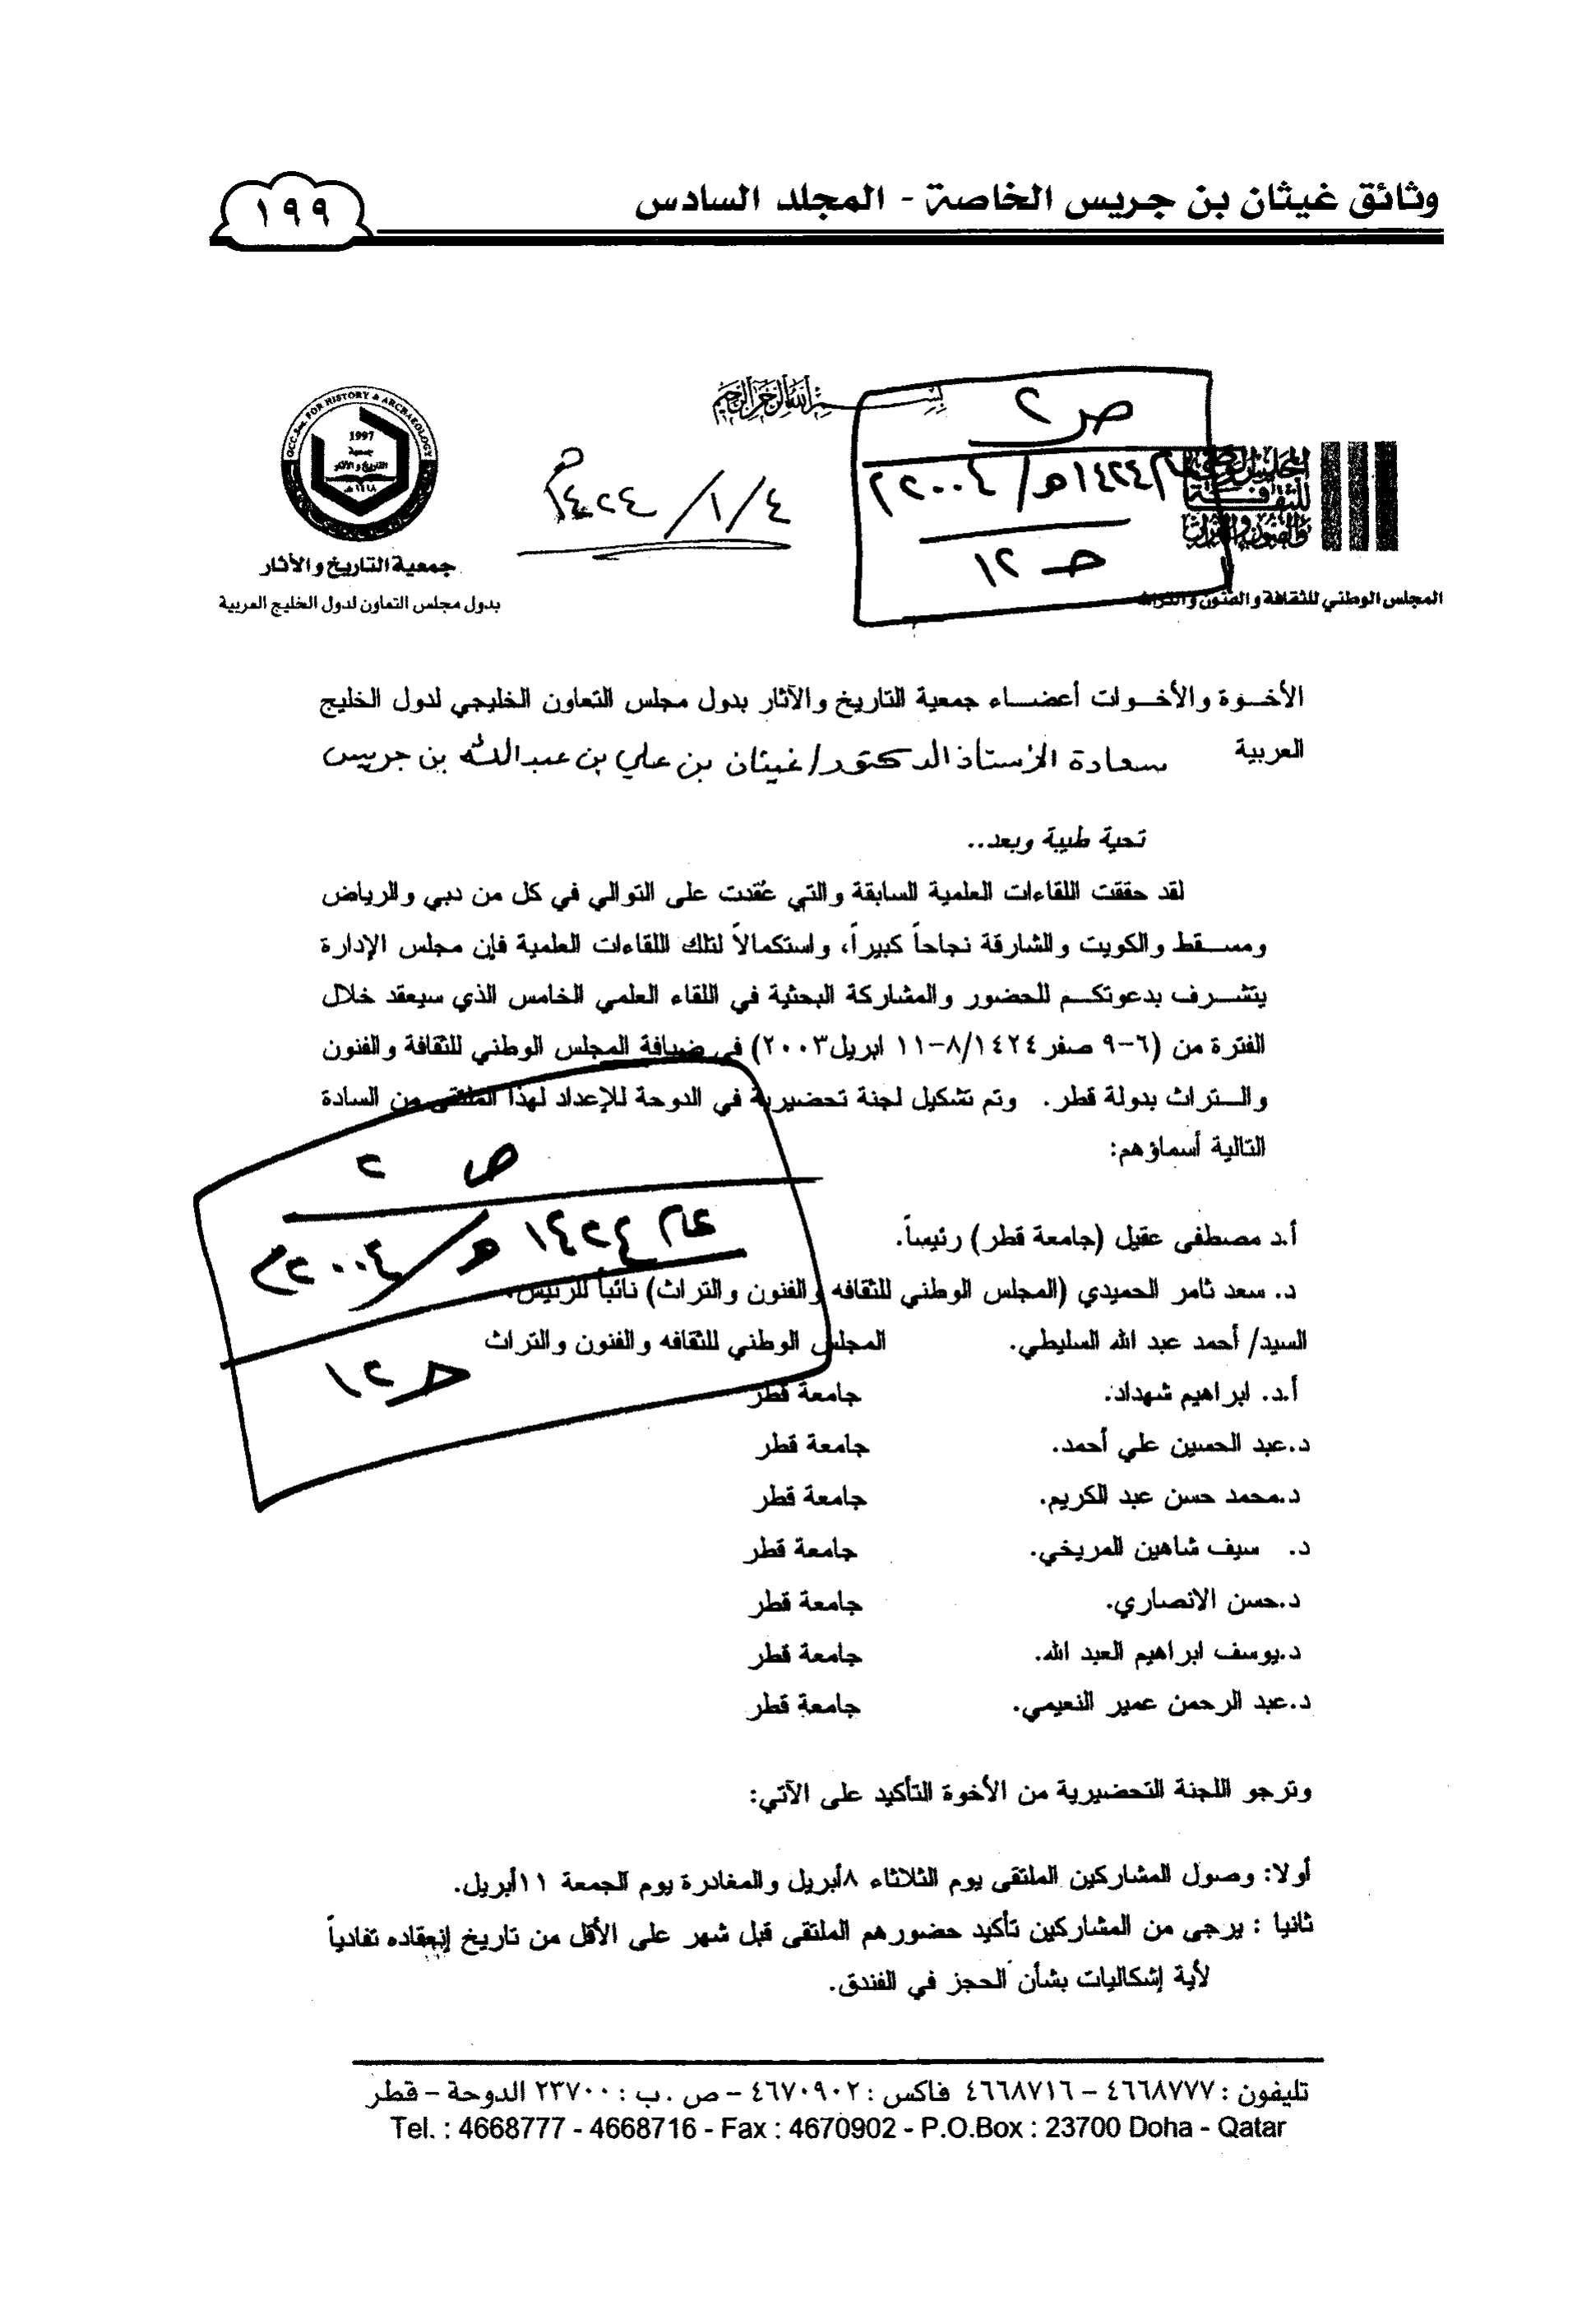 وثائق غيثان بن جريس الخاصة - المجلد السادس
١٩٩
بسم الله الرحمن الرحيم
GCC. Soc. FOR HISTORY & ARCHAEOLOGY
1997
جمعية
التاريخ والآثار
١٤١٨هـ
جمعية التاريخ والأثار
بدول مجلس التعاون لدول الخليج العربية
٤/١/١٤٢٤هـ
ص ٢
١٤٢٤هـ/٢٠٠٤م
حـ ١٢
المجلس الوطني
للثقافة
والفنون والتراث
المجلس الوطني للثقافة والفنون والتراث
الأخوة والأخوات أعضاء جمعية التاريخ والآثار بدول مجلس التعاون الخليجي لدول الخليج
العربية سعادة الأستاذ الدكتور/ غيثان بن علي بن عبدالله بن جريس
تحية طيبة وبعد..
لقد حققت اللقاءات العلمية السابقة والتي عُقدت على التوالي في كل من دبي والرياض
ومسقط والكويت والشارقة نجاحاً كبيراً، واستكمالاً لتلك اللقاءات العلمية فإن مجلس الإدارة
يتشرف بدعوتكم للحضور والمشاركة البحثية في اللقاء العلمي الخامس الذي سيعقد خلال
الفترة من (٦-٩ صفر ١٤٢٤/٨-١١ ابريل٢٠٠٣) في ضيافة المجلس الوطني للثقافة والفنون
والتراث بدولة قطر. وتم تشكيل لجنة تحضيرية في الدوحة للإعداد لهذا الملتقى من السادة
التالية أسماؤهم:
ص ٢
عام ١٤٢٤هـ/٢٠٠٤م
حـ ١٢
أ.د مصطفى عقيل (جامعة قطر) رئيساً.
د. سعد ثامر الحميدي (المجلس الوطني للثقافه والفنون والتراث) نائباً للرئيس.
السيد/ أحمد عبد الله السليطي. المجلس الوطني للثقافه والفنون والتراث
أ.د. ابراهيم شهداد. جامعة قطر
د.عبد الحسين علي أحمد. جامعة قطر
د.محمد حسن عبد الكريم. جامعة قطر
د. سيف شاهين المريخي. جامعة قطر
د.حسن الانصاري. جامعة قطر
د.يوسف ابراهيم العبد الله. جامعة قطر
د.عبد الرحمن عمير النعيمي. جامعة قطر
وترجو اللجنة التحضيرية من الأخوة التأكيد على الآتي:
أولا: وصول المشاركين الملتقى يوم الثلاثاء ٨أبريل والمغادرة يوم الجمعة ١١أبريل.
ثانيا : يرجى من المشاركين تأكيد حضورهم الملتقى قبل شهر على الأقل من تاريخ إنعقاده تفادياً
لأية إشكاليات بشأن الحجز في الفندق.
تليفون : ٤٦٦٨٧٧٧ - ٤٦٦٨٧١٦ فاكس : ٤٦٧٠٩٠٢ - ص . ب : ٢٣٧٠٠ الدوحة - قطر
Tel. : 4668777 - 4668716 - Fax : 4670902 - P.O.Box : 23700 Doha - Qatar